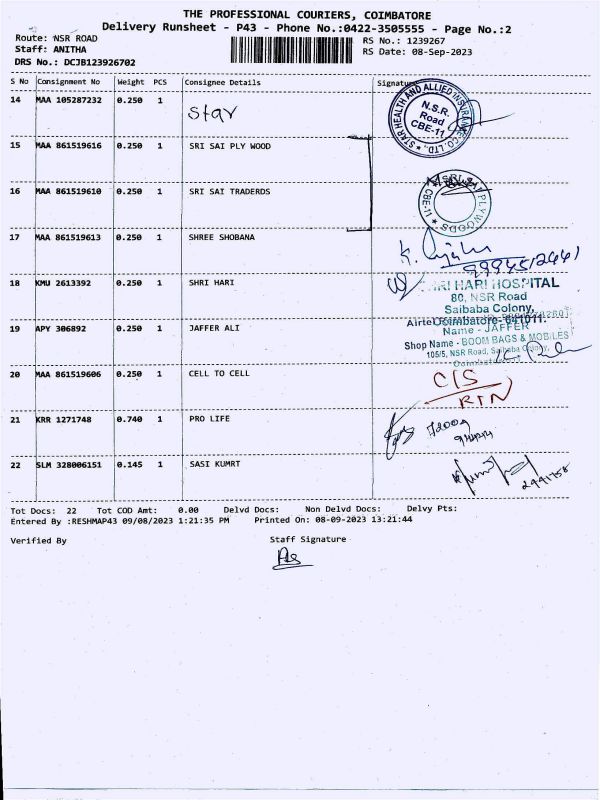 THE PROFESSIONAL COURIERS, COIMBATORE
Delivery Runsheet - P43 - Phone No.:0422-3505555 - Page No.:2
Route: NSR ROAD
RS No.: 1239267
Staff: ANITHA
RS Date: 08-Sep-2023
DRS No.: DCJB123926702
S No Consignment No Weight PCS Consignee Details Signature
14 MAA 105287232 0.250 1 Star
STAR HEALTH AND ALLIED INSURANCE CO. LTD.
N.S.R.
Road
CBE-11
15 MAA 861519616 0.250 1 SRI SAI PLY WOOD
16 MAA 861519610 0.250 1 SRI SAI TRADERDS
SRI SAI PLYWOODS
CBE-11
17 MAA 861519613 0.250 1 SHREE SHOBANA
18 KMU 2613392 0.250 1 SHRI HARI
HARI HOSPITAL
80, NSR Road
Saibaba Colony,
Coimbatore- 641011.
19 APY 306892 0.250 1 JAFFER ALI
Airtel
Name - JAFFER
Shop Name - BOOM BAGS & MOBILES
105/5, NSR Road, Saibaba Colony,
20 MAA 861519606 0.250 1 CELL TO CELL C/S
RTN
21 KRR 1271748 0.740 1 PRO LIFE
22 SLM 328006151 0.145 1 SASI KUMRT
Tot Docs: 22 Tot COD Amt: 0.00 Delvd Docs: Non Delvd Docs: Delvy Pts:
Entered By :RESHMAP43 09/08/2023 1:21:35 PM Printed On: 08-09-2023 13:21:44
Verified By Staff Signature